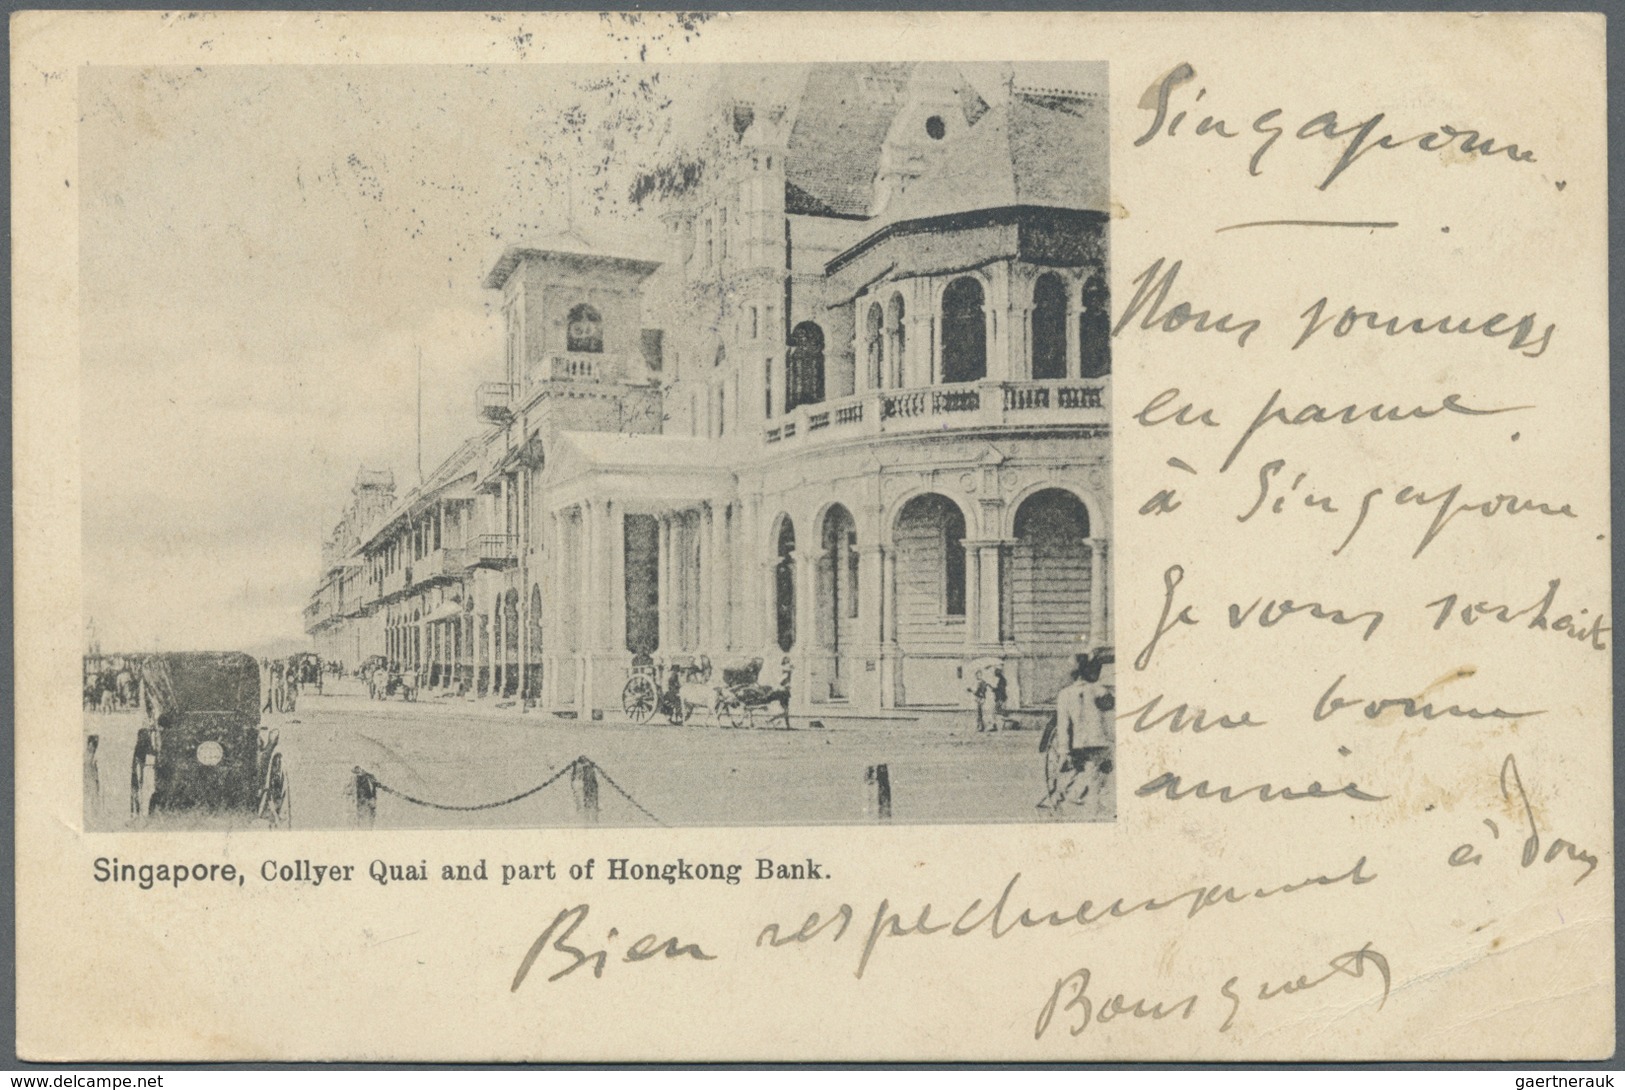 Singapour.
Nous sommes
en panne
à Singapour.
Je vous souhait
une bonne
année.
Bien respectueusement à vous
Bousquet
Singapore, Collyer Quai and part of Hongkong Bank.
www.delcampe.net
gaertnerauk